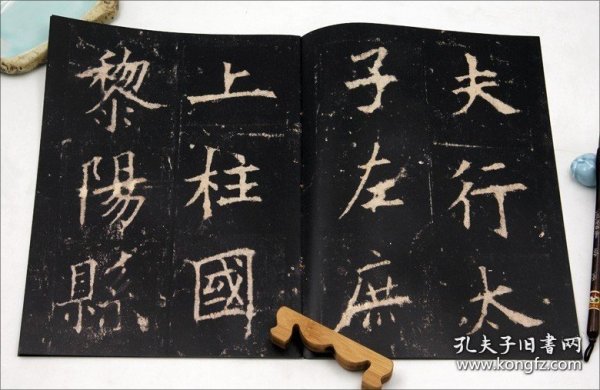 夫行太
子左庶
上柱國
黎陽縣
孔夫子旧書网
www.kongfz.com